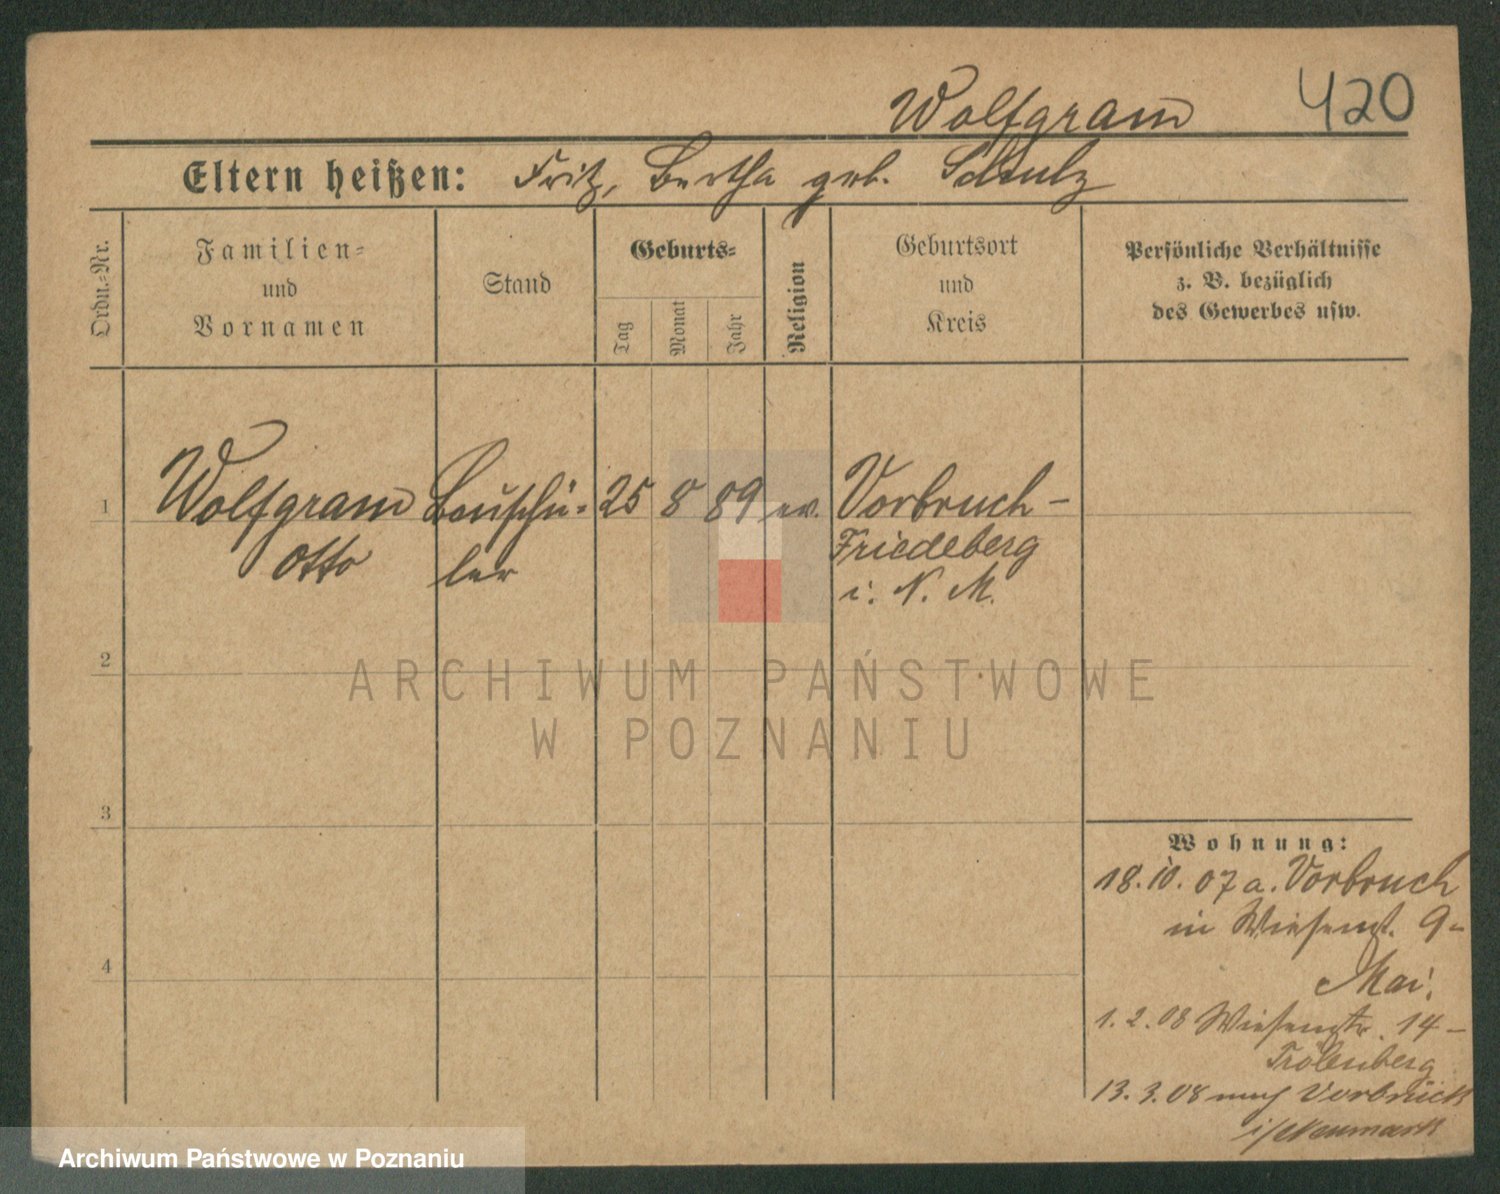 Wolfgram 420
Eltern heißen: Fritz, Bertha geb. Schulz
Ordn.-Nr.
Familien-
und
Vornamen
Stand
Geburts-
Tag
Monat
Jahr
Religion
Geburtsort
und
Kreis
Persönliche Verhältnisse
z. B. bezüglich
des Gewerbes usw.
1 Wolfgram Bauschü- 25 8 89 ev. Vorbruch-
Otto ler Friedeberg
i. N. M.
2
3
4
Wohnung:
18. 10. 07 a. Vorbruch
in Wiesenst. 9-
Mai.
1. 2. 08 Wiesenstr. 14-
13. 3. 08 nach Vorbruch
i/Neumark
ARCHIWUM PAŃSTWOWE
W POZNANIU
Archiwum Państwowe w Poznaniu